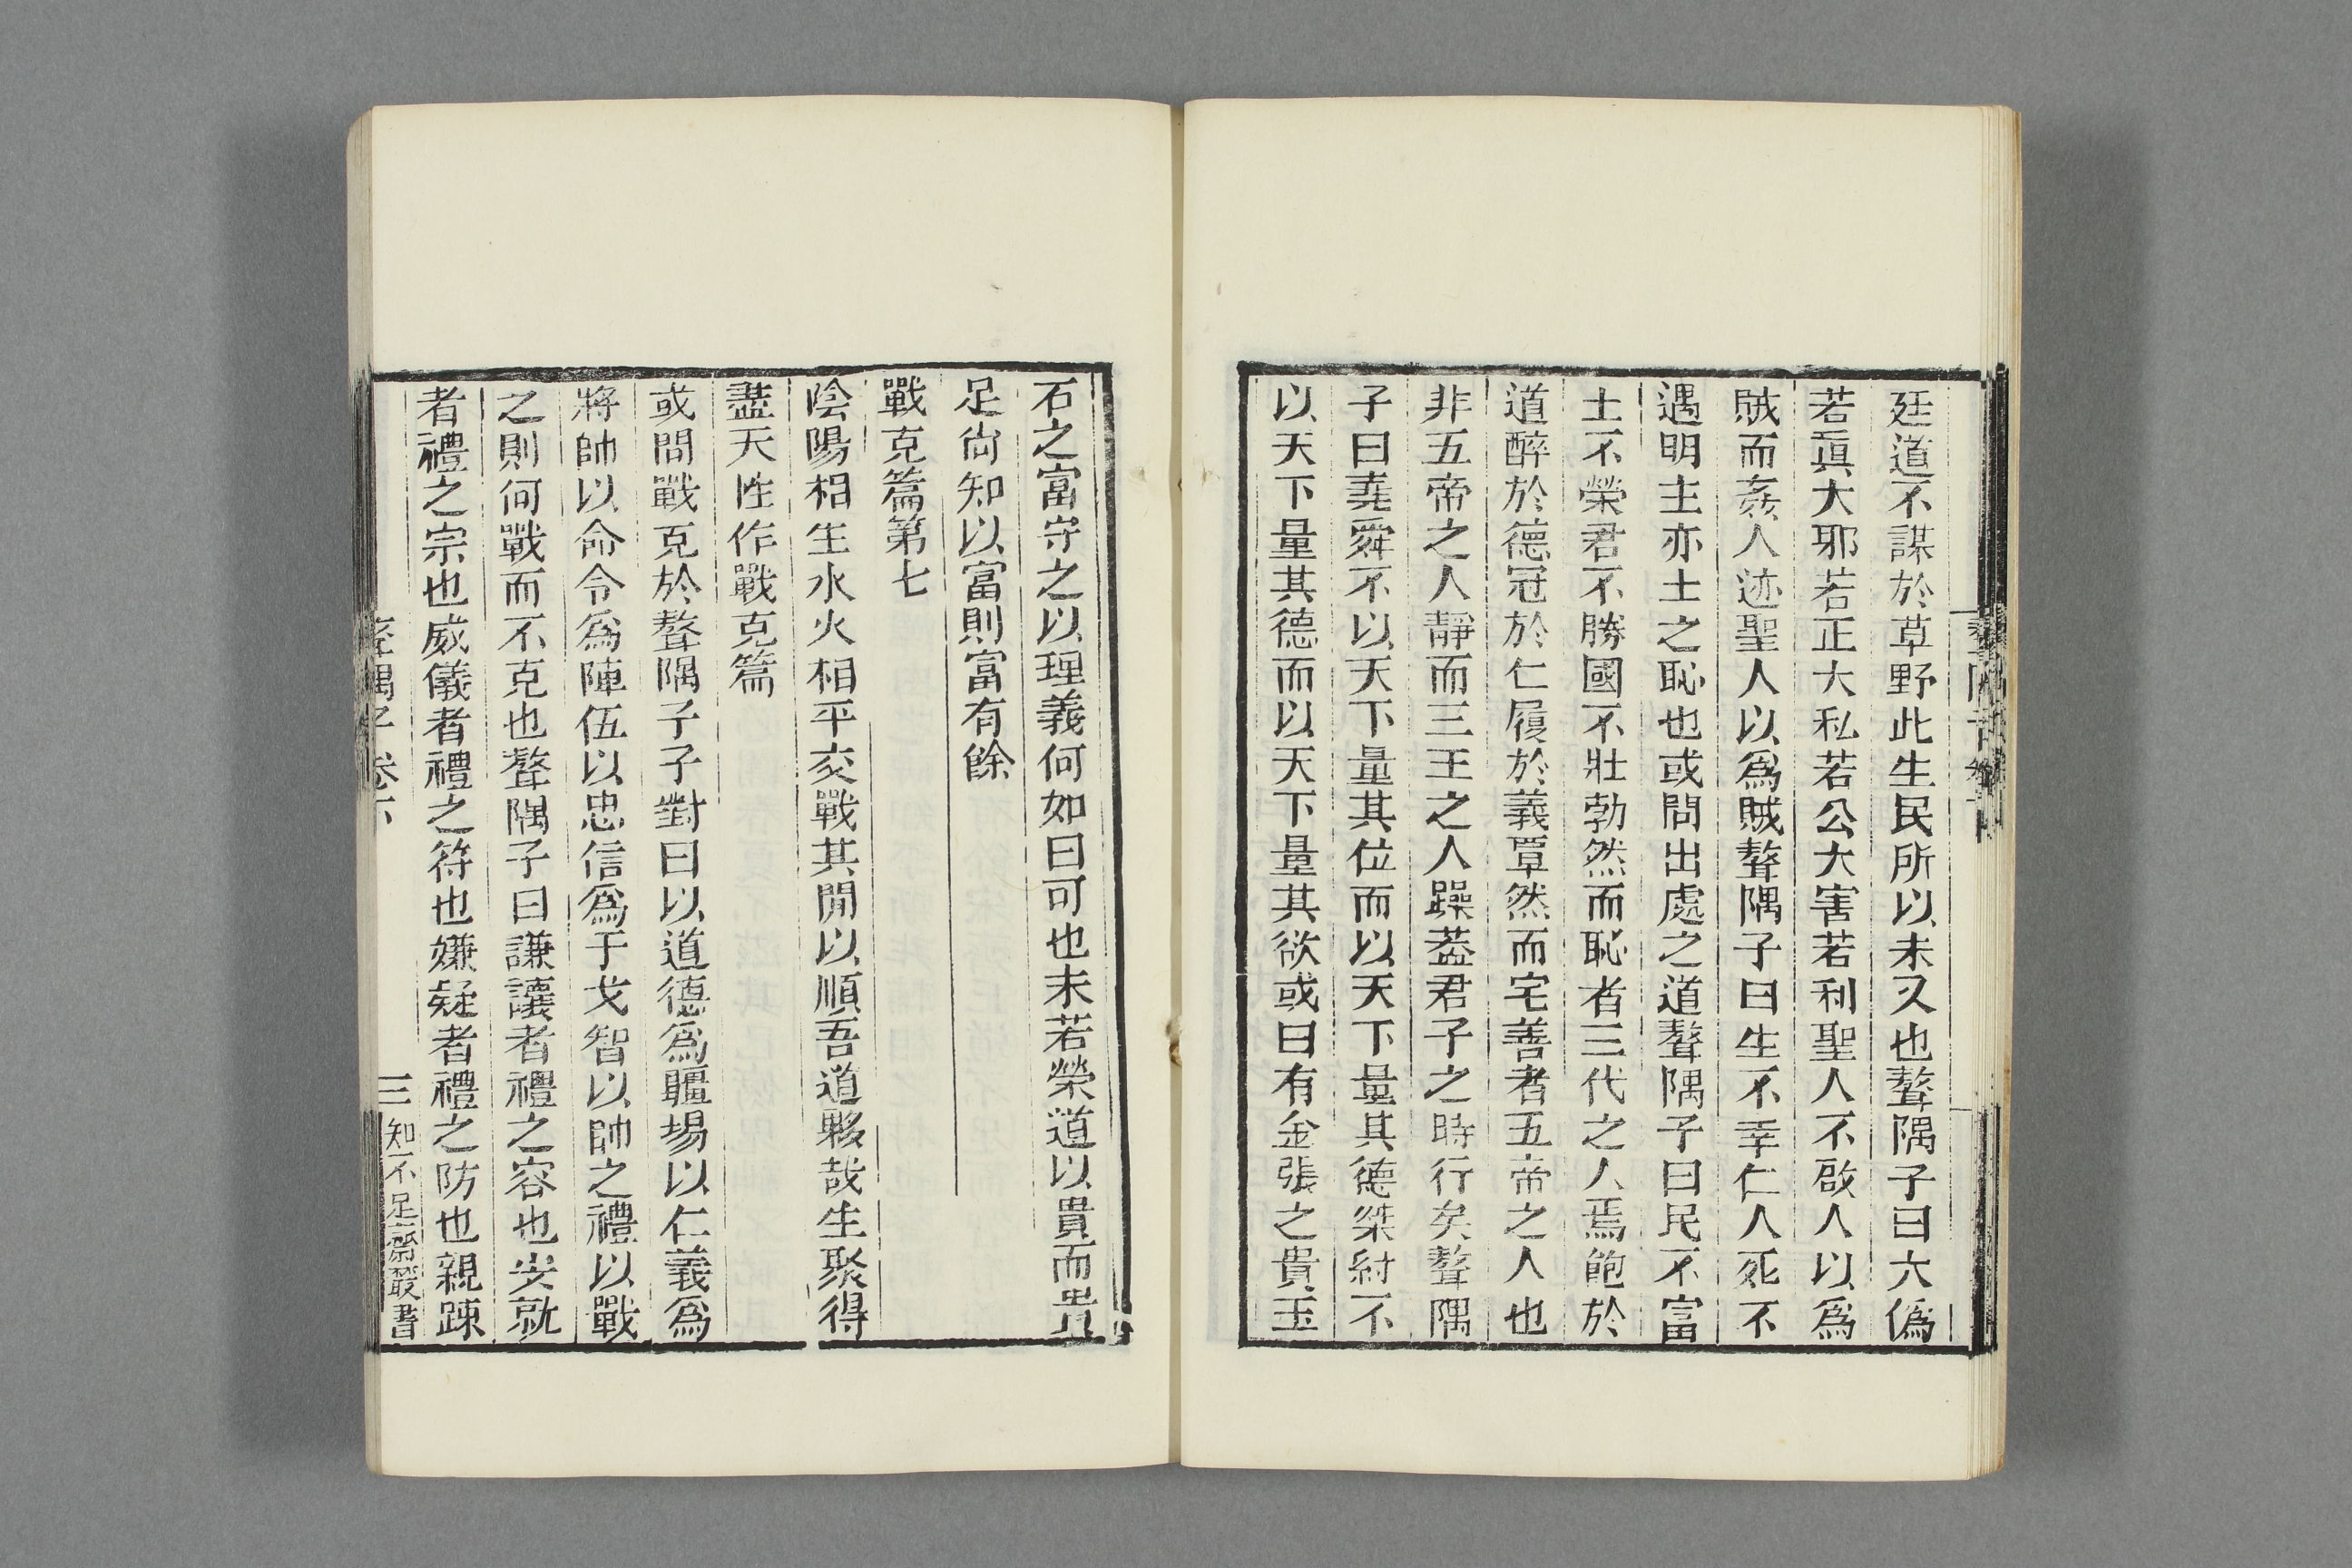 廷道不謀於草野此生民所以未乂也聱隅子曰大僞
若眞大耶若正大私若公大害若利聖人不啟人以爲
賊而姦人迹聖人以爲賊聱隅子曰生不幸仁人死不
遇明主亦士之恥也或問出處之道聱隅子曰民不富
士不榮君不勝國不壯勃然而恥者三代之人焉飽於
道醉於德冠於仁履於義覃然而宅善者五帝之人也
非五帝之人靜而三王之人躁葢君子之時行矣聱隅
子曰堯舜不以天下量其位而以天下量其德桀紂不
以天下量其德而以天下量其欲或曰有金張之貴玉
石之富守之以理義何如曰可也未若榮道以貴而貴
足尙知以富則富有餘
戰克篇第七
陰陽相生水火相平交戰其閒以順吾道夥哉生聚得
盡天性作戰克篇
或問戰克於聱隅子子對曰以道德爲疆場以仁義爲
將帥以命令爲陣伍以忠信爲干戈智以帥之禮以戰
之則何戰而不克也聱隅子曰謙讓者禮之容也步就
者禮之宗也威儀者禮之符也嫌疑者禮之防也親踈
聱隅子卷下
三
知不足齋叢書